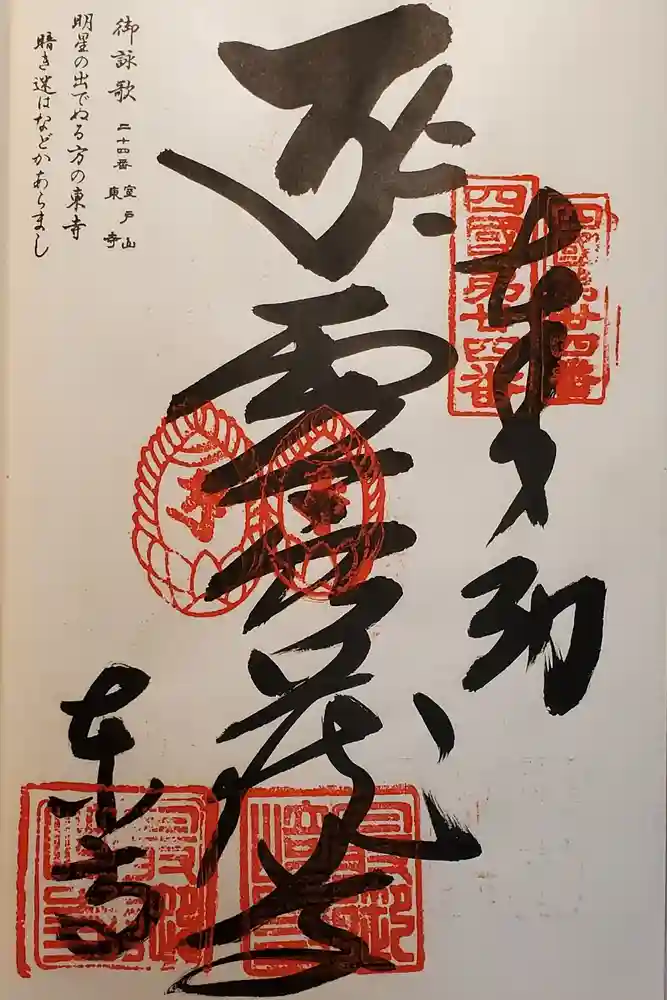 四國第廿四番
四國第廿四番
奉納
虚空蔵
東寺
御詠歌 二十四番 室戸山
東寺
明星の出でぬる方の東寺
暗き迷はなどかあらまし